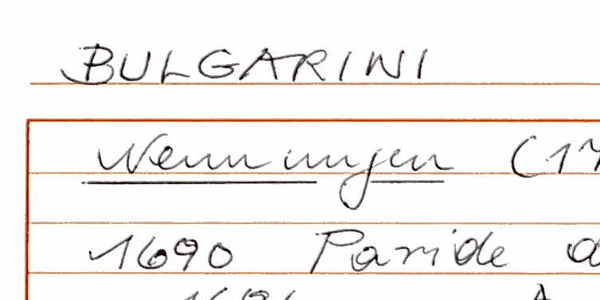 BULGARINI
Nennungen (17
1690 Paride d